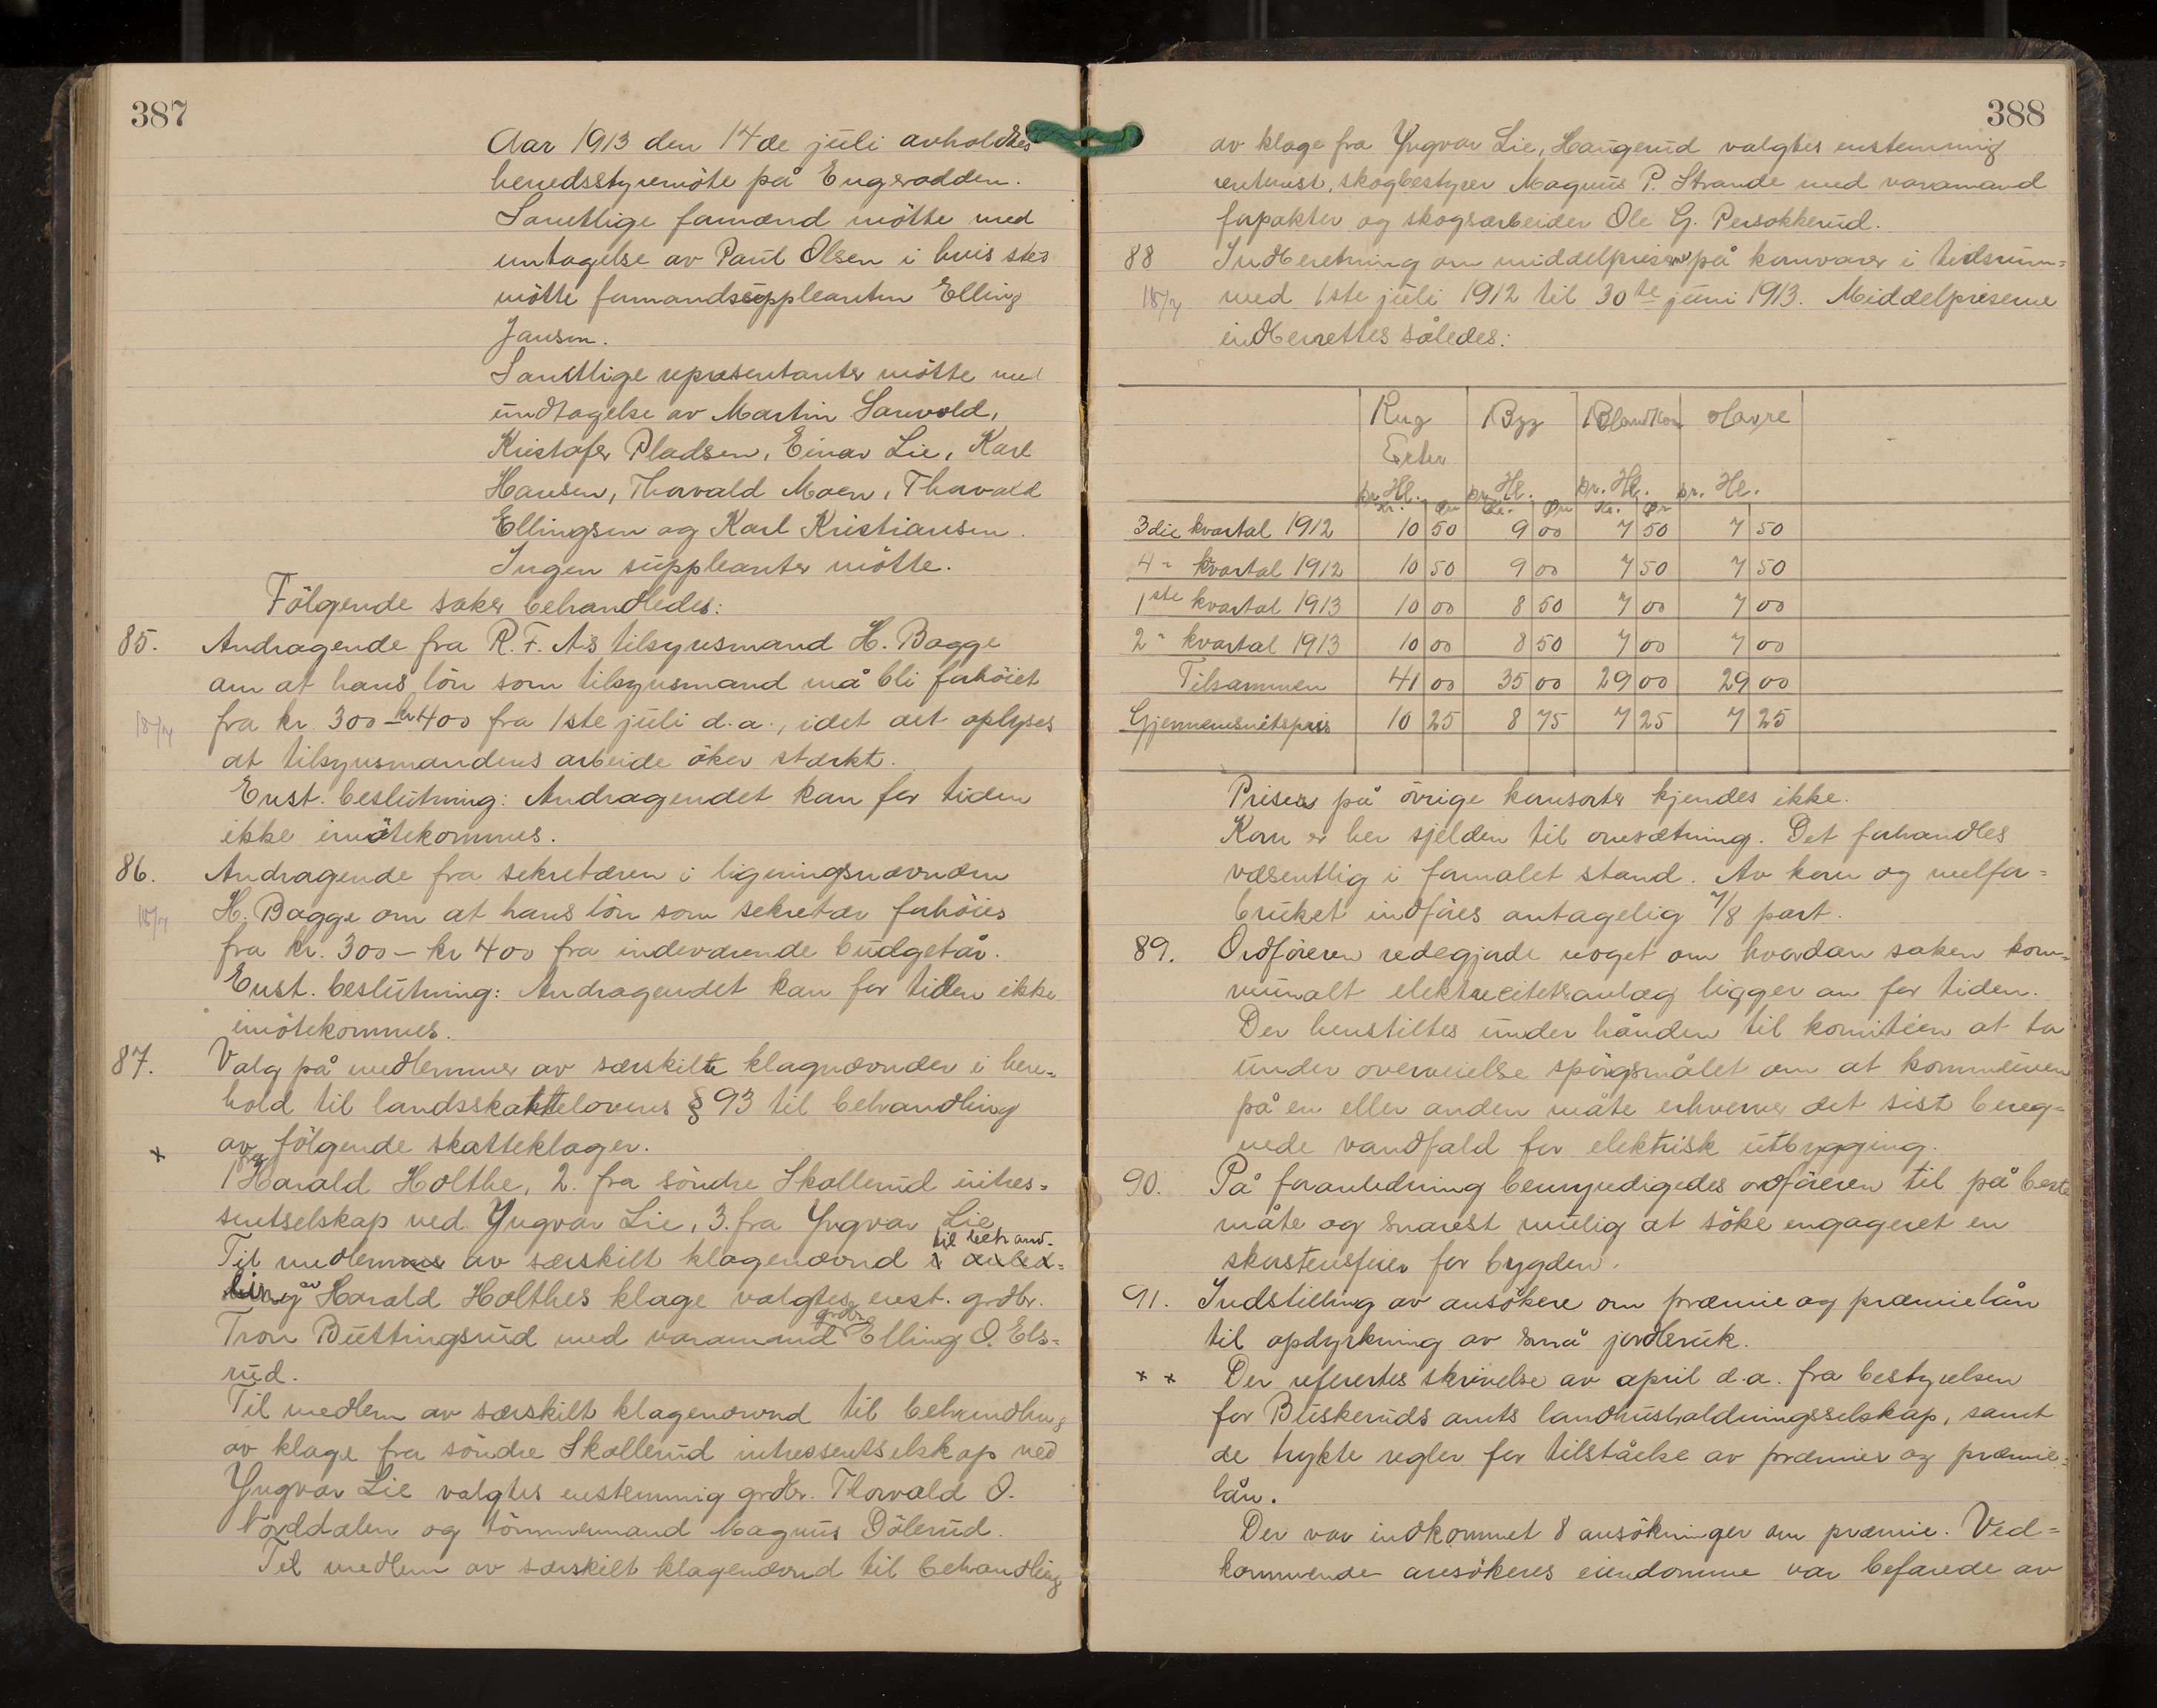 387
Aar 1913 den 14de juli avholdtes
herredsstyremöte på Engerodden.
Samtlige formænd mötte med
untagelse av Paul Olsen i hvis sted
mötte formandssuppleanten Elling
Jansen.
Samtlige representanter mötte med
undtagelse av Martin Sarvold,
Kristofer Pladsen, Einar Lie, Karl
Hansen, Thorvald Moen, Thorvald
Ellingsen og Karl Kristiansen.
Ingen suppleanter mötte.
Fölgende saker behandledes:
85. Andragende fra R. F. A's tilsynsmand H. Bagge
om at hans lön som tilsynsmand må bli forhöiet
18/7 fra kr. 300 - kr 400 fra 1ste juli d.a., idet det oplyses
at tilsynsmandens arbeide öker stærkt.
Enst. beslutning: Andragendet kan for tiden
ikke imötekommes.
86. Andragende fra sekretæren i ligningsnævnden
18/7 H. Bagge om at hans lön som sekretær forhöies
fra kr. 300 – kr 400 fra indeværende budgetår.
Enst. beslutning: Andragendet kan for tiden ikke
imötekommes.
87. Valg på medlemmer av særskilte klagnævnder i hen-
hold til landsskattelovens § 93 til behandling
x av fölgende skatteklager.
1 fra Harald Holthe, 2. fra söndre Skollerud intres-
sentselskap ved Yngvar Lie, 3. fra Yngvar Lie.
Til medlem av særskilt klagenævnd til behand-
ling av Harald Holthes klage valgtes enst. grdbr.
Tron Buttingsrud med varamand grdbr. Elling O. Els-
rud.
Til medlem av særskilt klagenævnd til behandling
av klage fra söndre Skollerud intressentselskap ved
Yngvar Lie valgtes enstemmig grdbr. Thorvald O.
Norddalen og tömmermand Magnus Dölerud.
Til medlem av særskilt klagenævnd til behandling
388
av klage fra Yngvar Lie, Haugerud valgtes enstemmig
skogbestyrer Magnus P. Strande med varamand
forpakter og skogsarbeider Ole G. Persokkerud.
88 Indberetning om middelprisen på kornvarer i tidsrum-
18/7 med 1ste juli 1912 til 30te juni 1913. Middelpriserne
indberettes således:
Rug Erter Byg Blandkorn Havre
pr. Hl. pr. Hl. pr. Hl. pr. Hl.
Kr. Öre Kr. Öre Kr. Öre
3die kvartal 1912 10 50 9 00 7 50 7 50
4 " kvartal 1912 10 50 9 00 7 50 7 50
1ste kvartal 1913 10 00 8 50 7 00 7 00
2 " kvartal 1913 10 00 8 50 7 00 7 00
Tilsammen 41 00 35 00 29 00 29 00
Gjennemsnitspris 10 25 8 75 7 25 7 25
Prisen på övrige kornsorter kjendes ikke.
Korn er her sjelden til omsætning. Det forhandles
væsentlig i formalet stand. Av korn og melfor-
bruket indföres antagelig 7/8 part.
89. Ordföreren redegjorde noget om hvordan saken kom-
munalt elektricitetsanlæg ligger an for tiden.
Der henstiltes under hånden til komitéen at ta
under overveielse spörgsmålet om at kommunen
på en eller anden måte erhverver det sist bereg-
nede vandfald for elektrisk utbygging.
90. På foranledning bemyndigedes ordföreren til på beste
måte og snarest mulig at söke engageret en
skorstensfeier for bygden.
91. Indstilling av ansökere om præmie og præmielån
til opdyrkning av små jordbruk.
x x Der refertes skrivelse av april d.a. fra bestyrelsen
for Buskeruds amts landhusholdningsselskap, samt
de trykte regler for tilståelse av præmier og præmie-
lån.
Der var indkommet 8 ansökninger om præmie. Ved-
kommende ansökeres eiendomme var befarede av